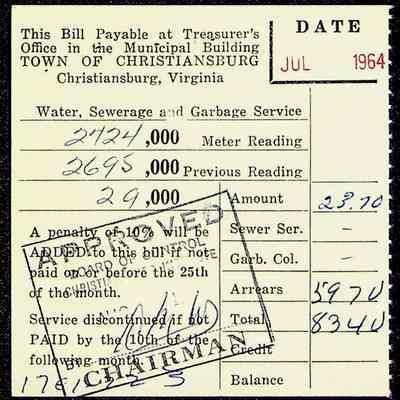 This Bill Payable at Treasurer's
Office in the Municipal Building
TOWN OF CHRISTIANSBURG
Christiansburg, Virginia
DATE
JUL 1964
Water, Sewerage and Garbage Service
2724,000 Meter Reading
2695,000 Previous Reading
29,000 Amount 23.70
A penalty of 10% will be
ADDED to this bill if not
paid on or before the 25th
of the month.
Service discontinued if not
PAID by the 10th of the
following month.
Sewer Ser. –
Garb. Col. –
Arrears 5970
Total 8340
Credit
Balance
APPROVED
BOARD OF CONTROL
CHAIRMAN